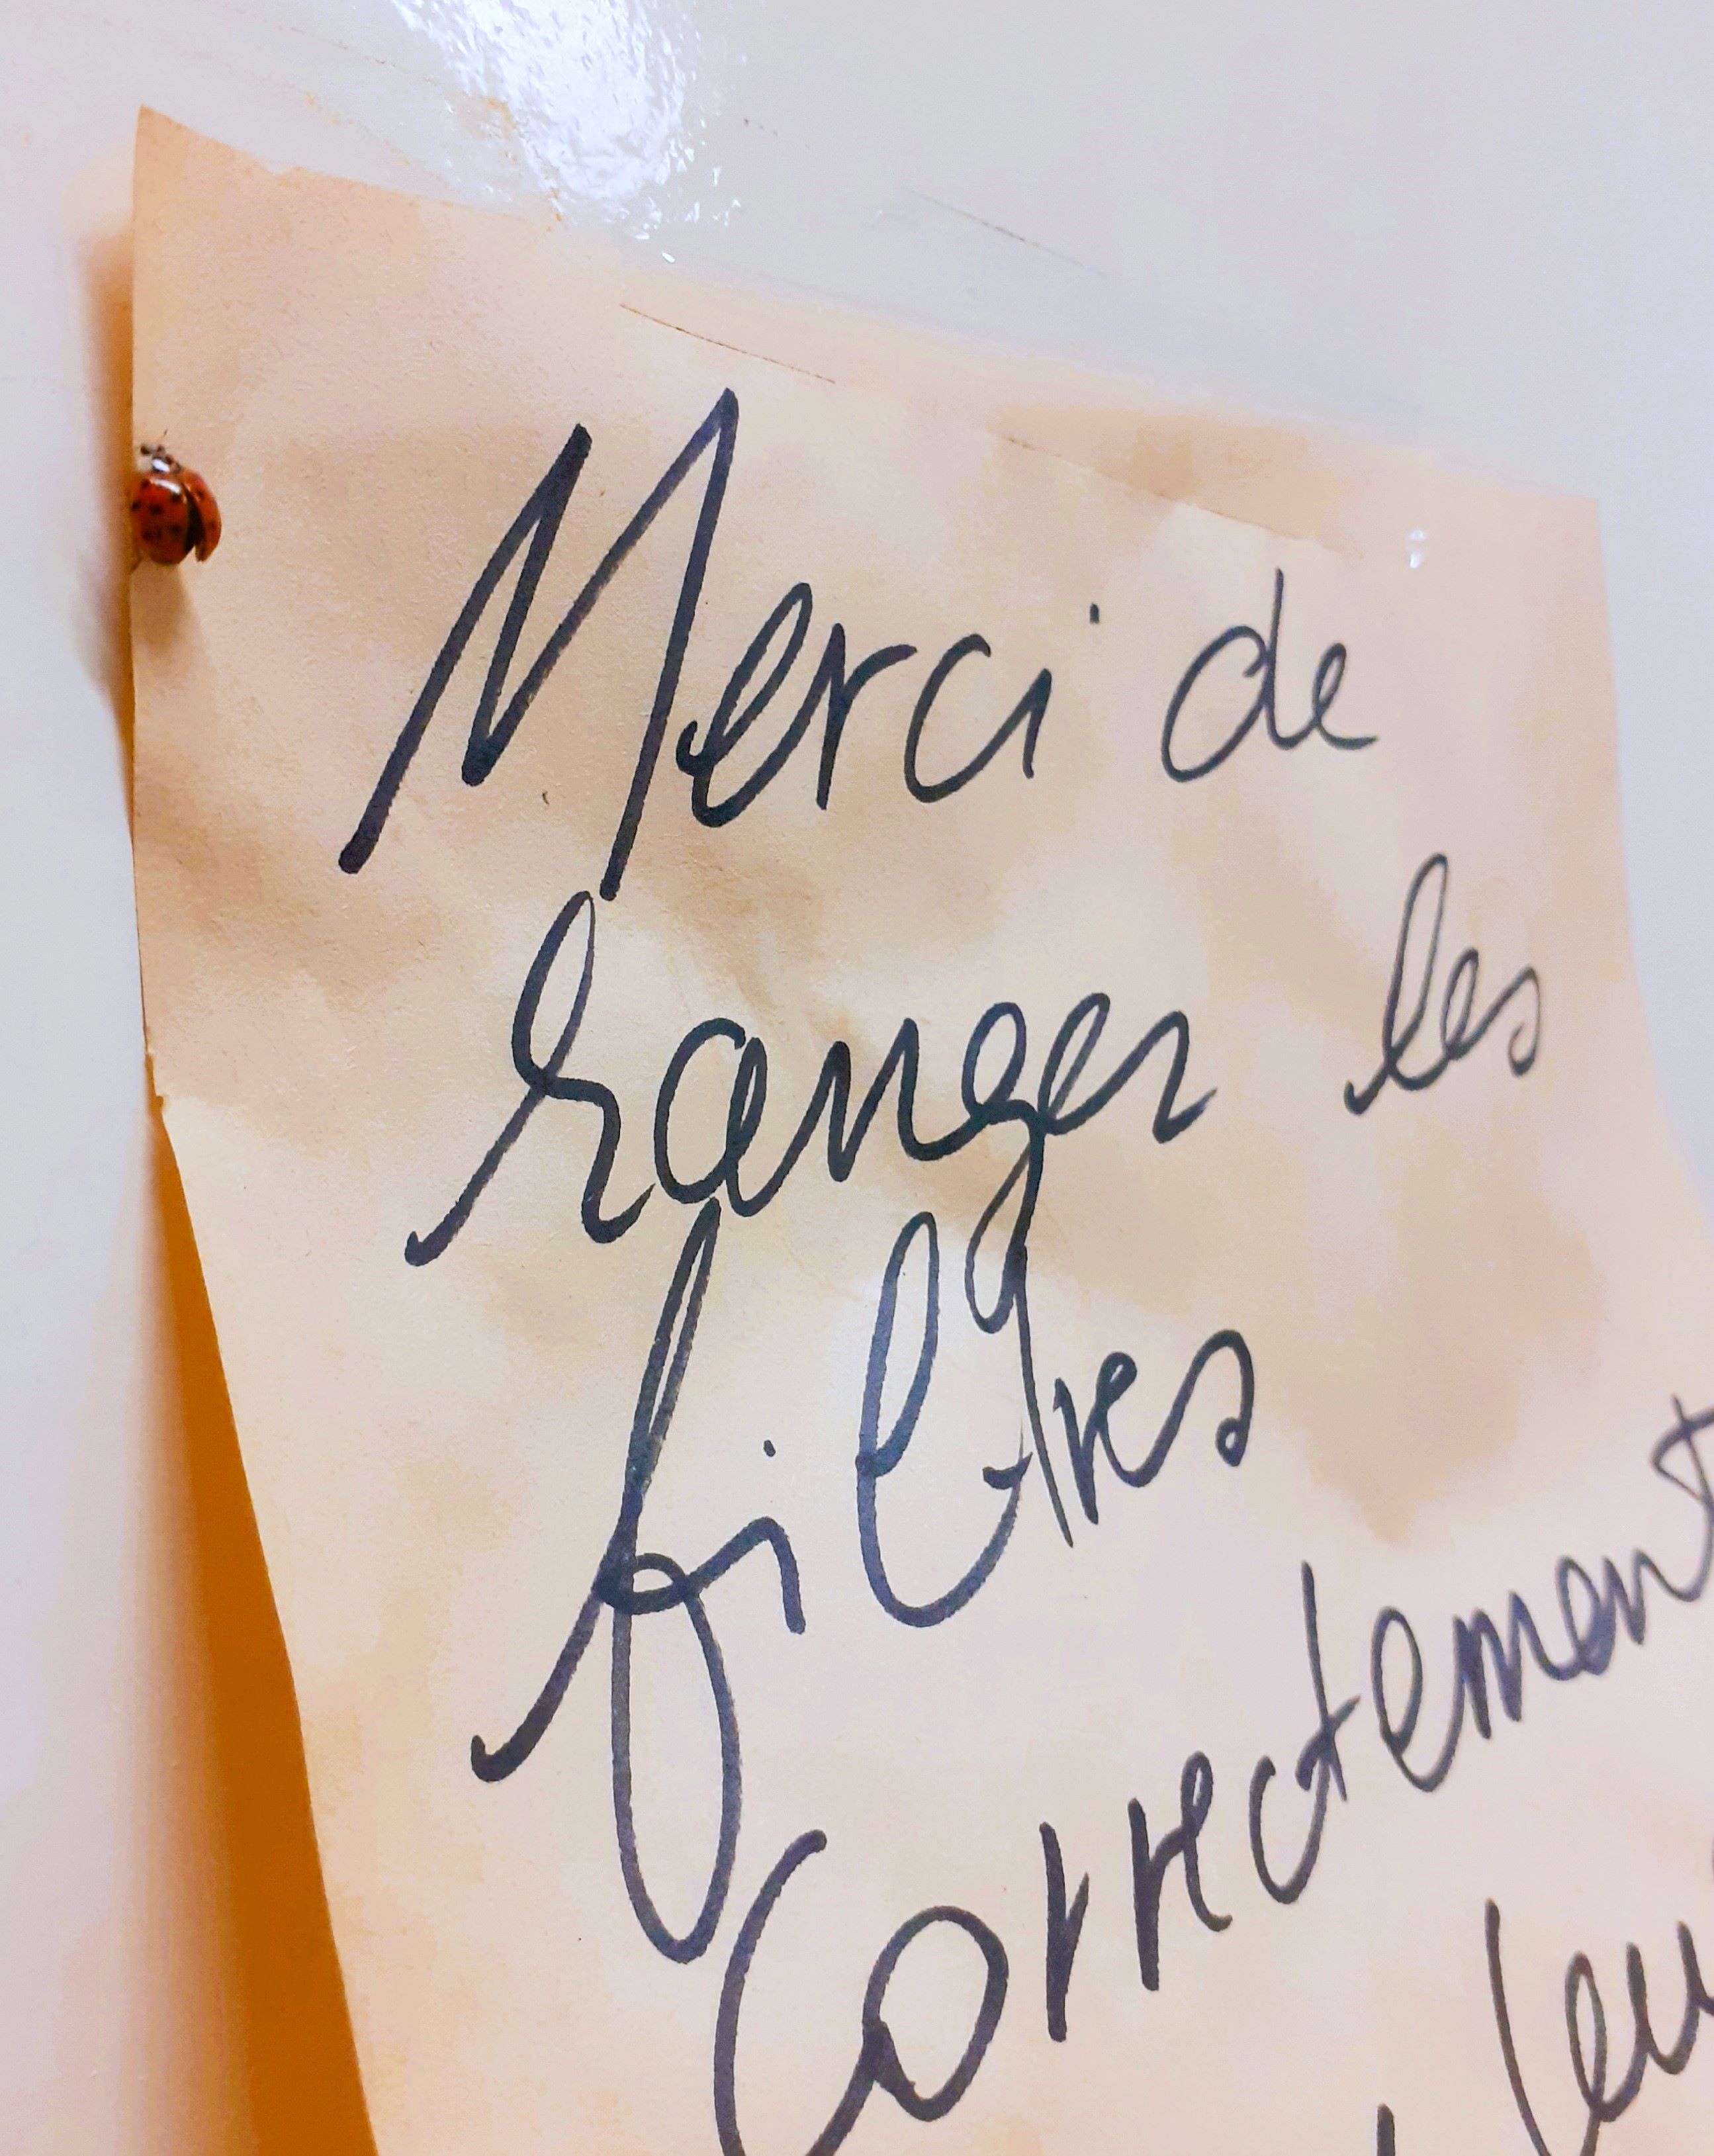 Merci de
ranger les
filtres
correctement